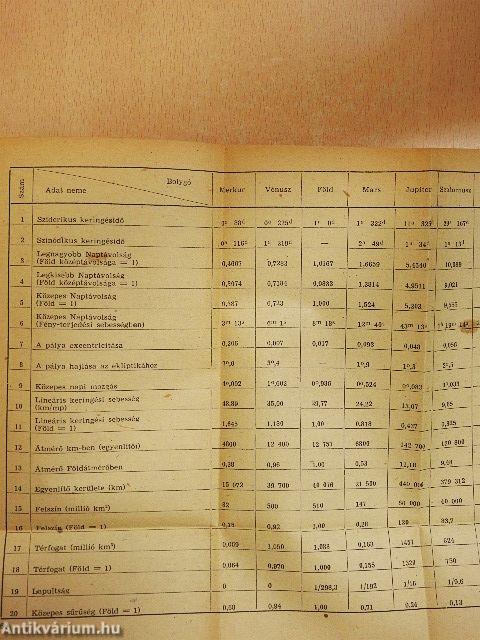 Szám Adat neme Bolygó Merkur Vénusz Föld Mars Jupiter Szaturnusz
1 Sziderikus keringésidő 0ª 88ᵈ 0ª 225ᵈ 1ª 0ᵈ 1ª 322ᵈ 11ª 29ª 167ᵈ
2 Szinódikus keringésidő 0ª 116ᵈ 1ª 219ᵈ — 2ª 49ᵈ 1ª 34ᵈ 1ª 13ᵈ
3 Legnagyobb Naptávolság
(Föld középtávolsága = 1) 0,4667 0,7283 1,0167 1,6659 5,4540
4 Legkisebb Naptávolság
(Föld középtávolsága = 1) 0,3074 0,9833 1,3814 4,9511 9,021
5 Közepes Naptávolság
(Föld középtávolsága = 1) 0,387 0,723 1,000 1,524 5,203
6 Közepes Naptávolság
(Fény-terjedési sebességben) 3ᵐ 13ˢ 6ᵐ 1ˢ 8ᵐ 18ˢ 12ᵐ 43ᵐ 13ˢ
7 A pálya excentricitása 0,206 0,007 0,017 0,093 0,048 0,056
8 A pálya hajlása az ekliptikához 3º,4 1º,9
9 Közepes napi mozgás 4º,092 1º,602 0º,986 0º,524 0º,083 0º,033
10 Lineáris keringési sebesség
(km/mp) 35,00 29,77 24,22 13,07 9,65
11 Lineáris keringési sebesség
(Föld = 1) 1,180 1.00 0.818 0,437
12 Átmérő km-ben (egyenlítői) 12 400 12 757 6800 142 700 120 800
13 Átmérő Földátmérőben 0,38 0,96 1.00 0,53 11,18
14 Egyenlítő kerülete (km) 15 072 39 700 40 076 440 000 379 312
15 Felszín (millió km²) 500 510 147 40 000
16 Felszín (Föld = 1) 0,15 0,92 1.00 0,28 33,7
17 Térfogat (millió km³) 0,069 1,050 1,083 0,163 1457 824
18 Térfogat (Föld = 1) 0,064 0,970 1,000 0,155 750
19 Lapultság 0 0 1/298,3 1/192
20 Közepes sűrűség (Föld = 1) 0,94 1,00 0,71 0,24 0,13
Antikvárium.hu